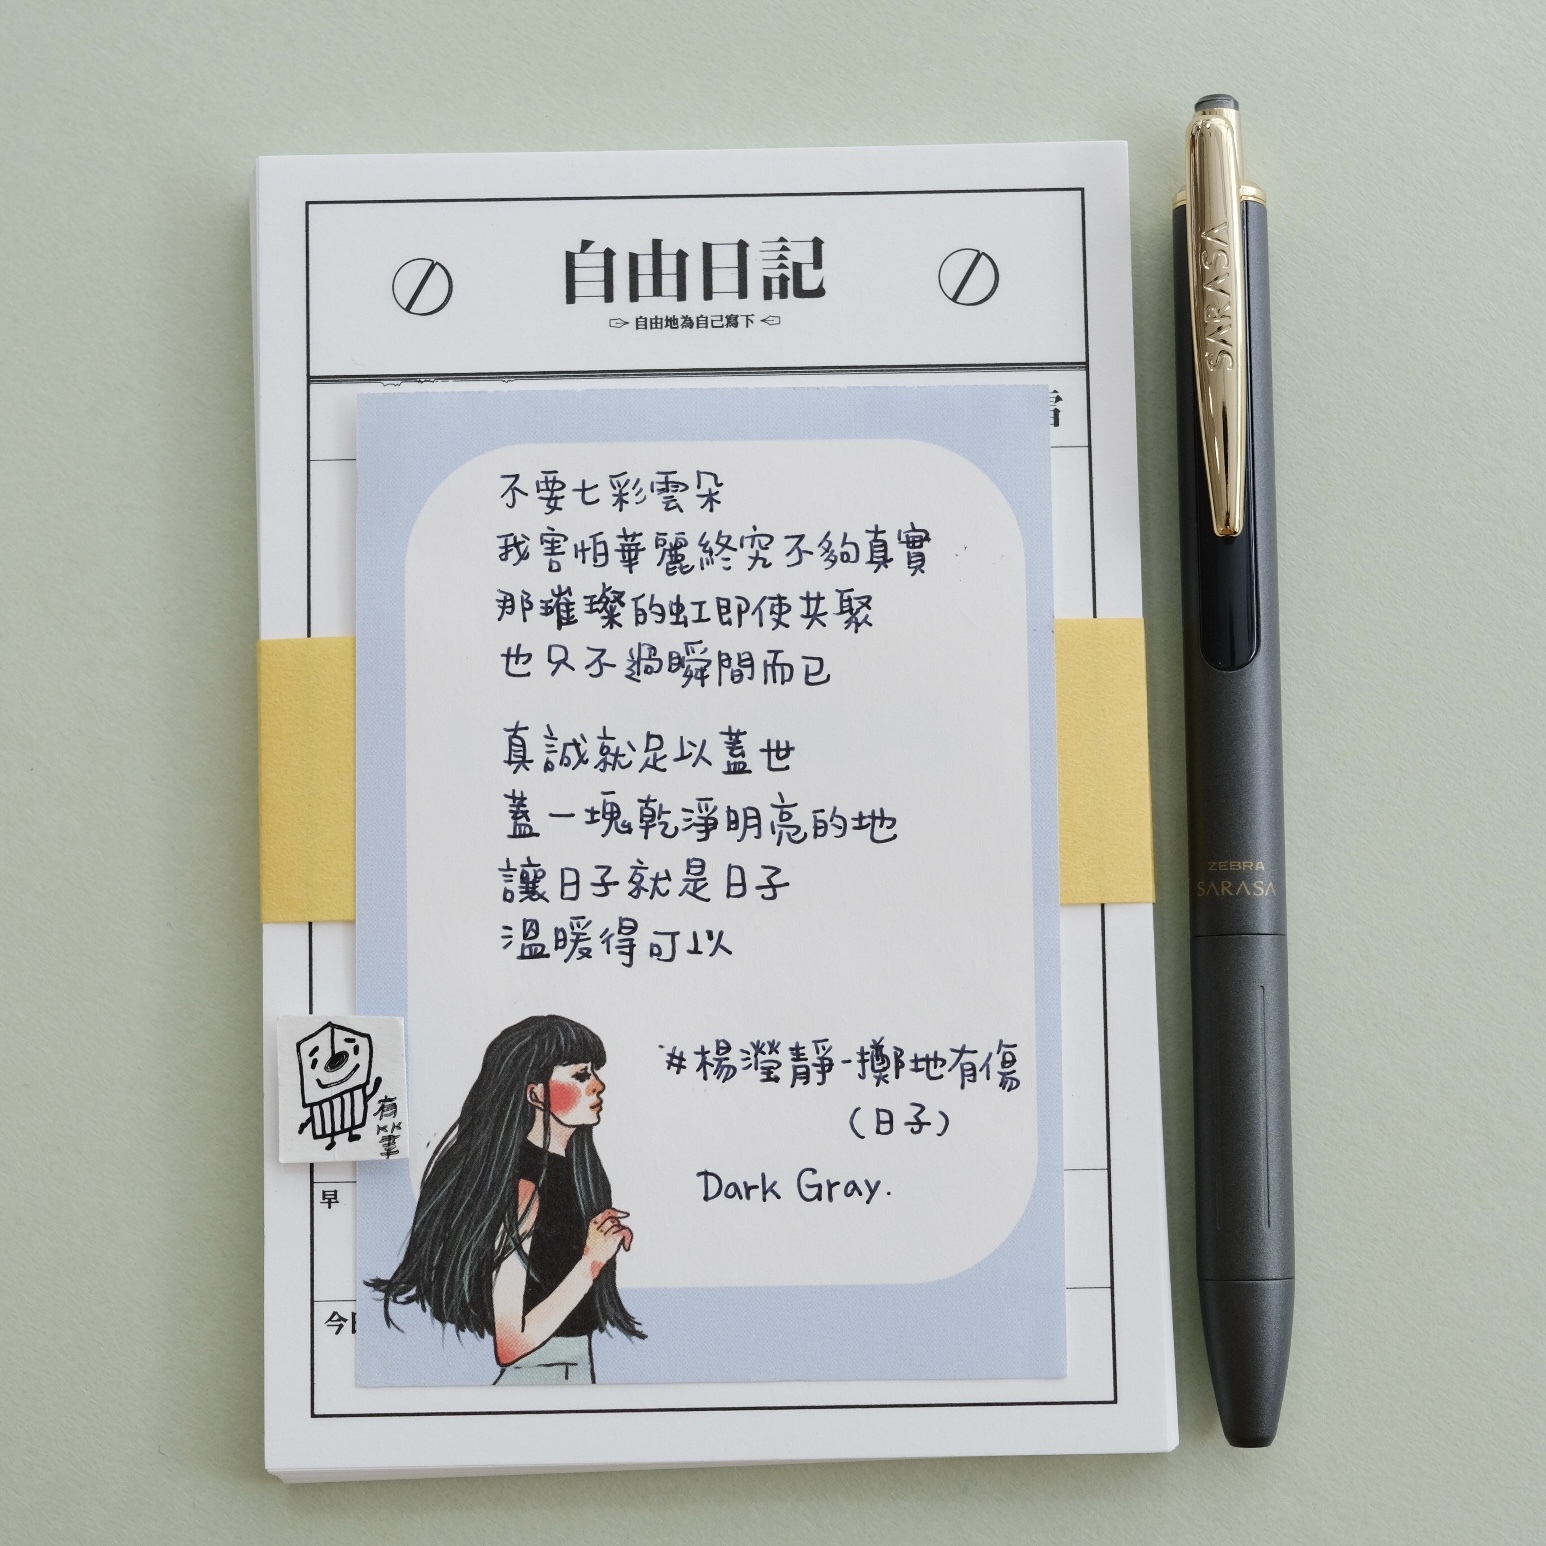 自由日記
自由地為自己寫下
不要七彩雲朵
我害怕華麗終究不夠真實
那璀璨的虹即使共聚
也只不過瞬間而已
真誠就足以蓋世
蓋一塊乾淨明亮的地
讓日子就是日子
溫暖得可以
#楊瀅靜-擲地有傷
(日子)
Dark Gray.
有筆
早
今日
SARASA
ZEBRA
SARASA